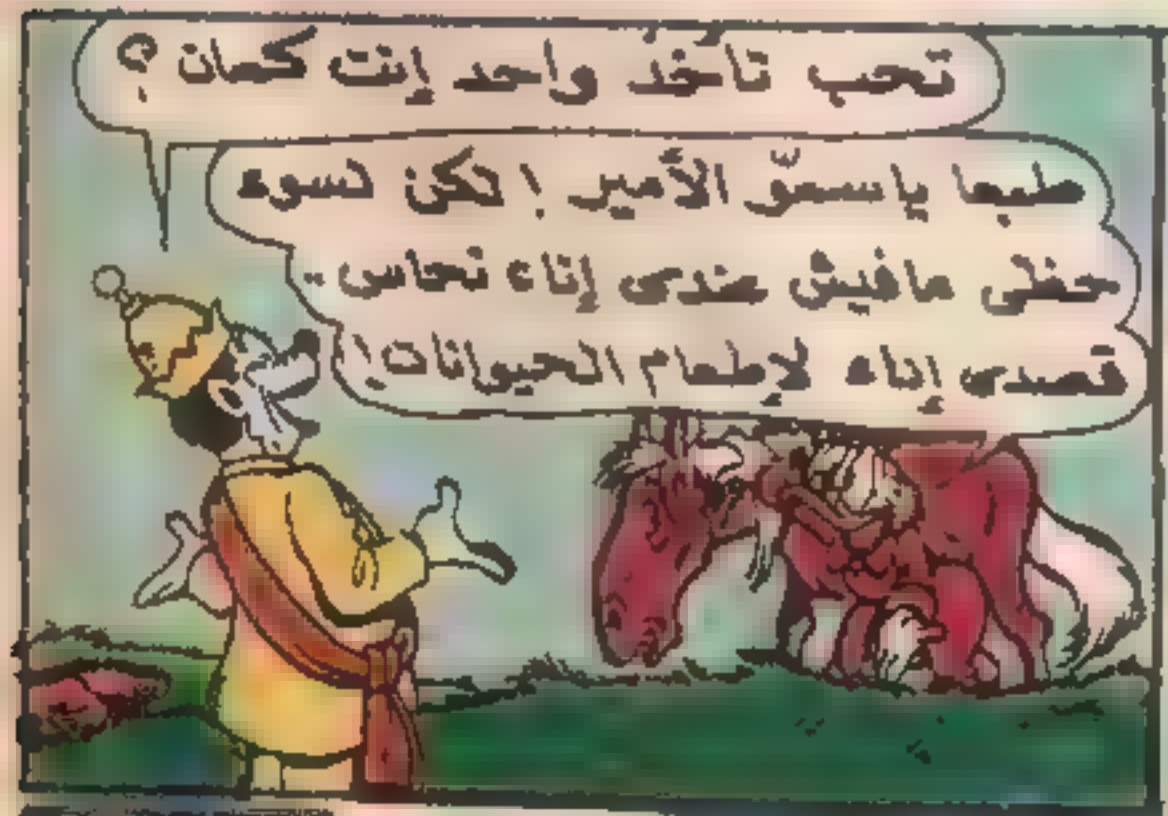 تحب تأخذ واحد إنت كمان؟
طبعا ياسموّ الأمير! لكن لسوء
حظى مافيش عندى إناء نحاس..
قصدى إناء لإطعام الحيوانات!